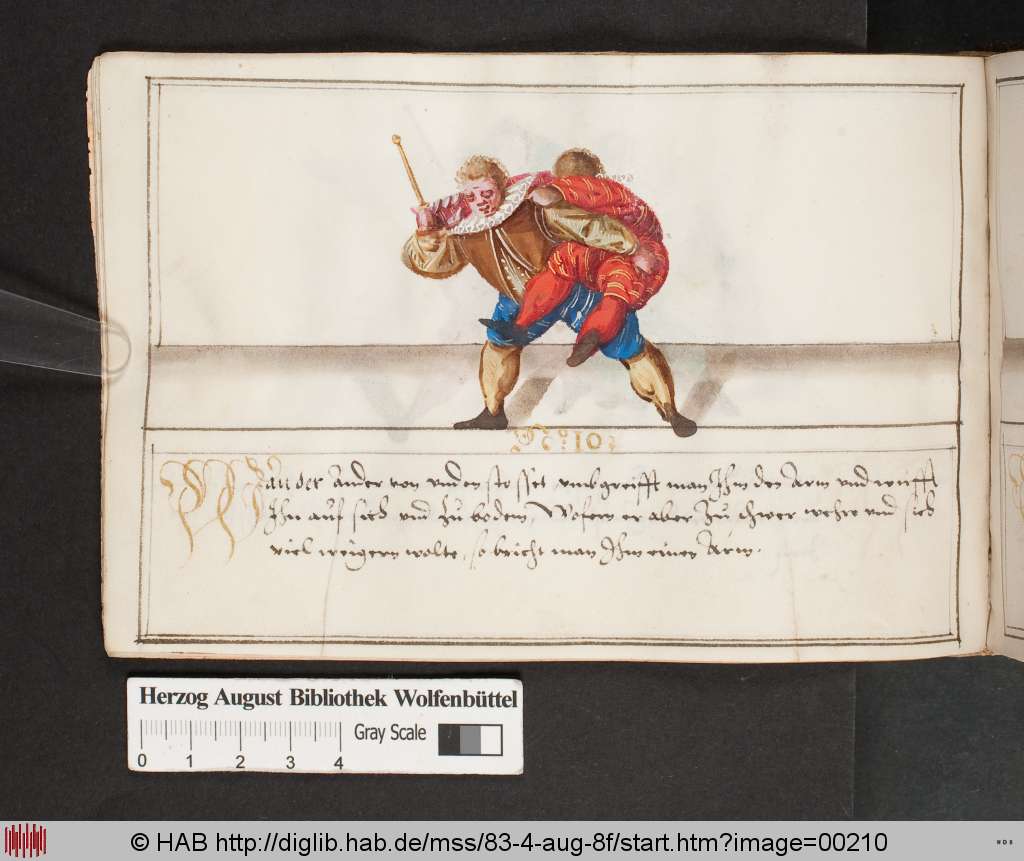 No: 10:
Wan der ander von vnden stosset, vmbgreifft man Ihm den Arm vnd wirfft
Ihn auf sich vnd zu bodem, Wofern er aber zu schwer wehre vnd sich
viel weigern wolte, so bricht man Ihm einen Arm.
Herzog August Bibliothek Wolfenbüttel
Gray Scale
0 1 2 3 4
© HAB http://diglib.hab.de/mss/83-4-aug-8f/start.htm?image=00210